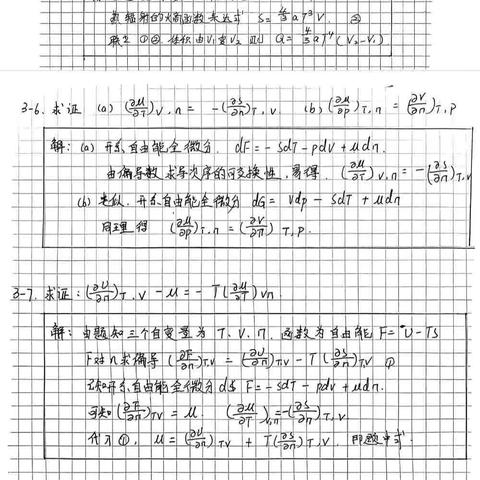 热辐射的火商函数表达式 S = 4/3 aT³V. ②
联立 ①② 体积由V₁变V₂ 则 Q = 4/3 aT⁴(V₂-V₁)
3-6. 求证 (a) (∂μ/∂T)V,n = -(∂S/∂n)T,V. (b) (∂μ/∂p)T,n = (∂V/∂n)T,P
解: (a) 开系自由能全微分. dF = -SdT - pdV + μdn.
由偏导数求导次序的可交换性, 易得. (∂μ/∂T)V,n = -(∂S/∂n)T,V
(b) 类似. 开系自由能全微分 dG = Vdp - SdT + μdn
同理得 (∂μ/∂p)T,n = (∂V/∂n)T,P.
3-7. 求证: (∂U/∂n)T,V - μ = -T(∂μ/∂T)Vn.
解: 由题知三个自变量为 T、V、n. 函数为自由能 F = U - TS
F对n求偏导 (∂F/∂n)T,V = (∂U/∂n)T,V - T(∂S/∂n)T,V ①
开系自由能全微分 F = -SdT - pdV + μdn.
可知 (∂F/∂n)TV = μ. (∂μ/∂T)V,n = -(∂S/∂n)T,V
代入①, μ = (∂U/∂n)TV + T(∂S/∂n)T,V. 即题中式.